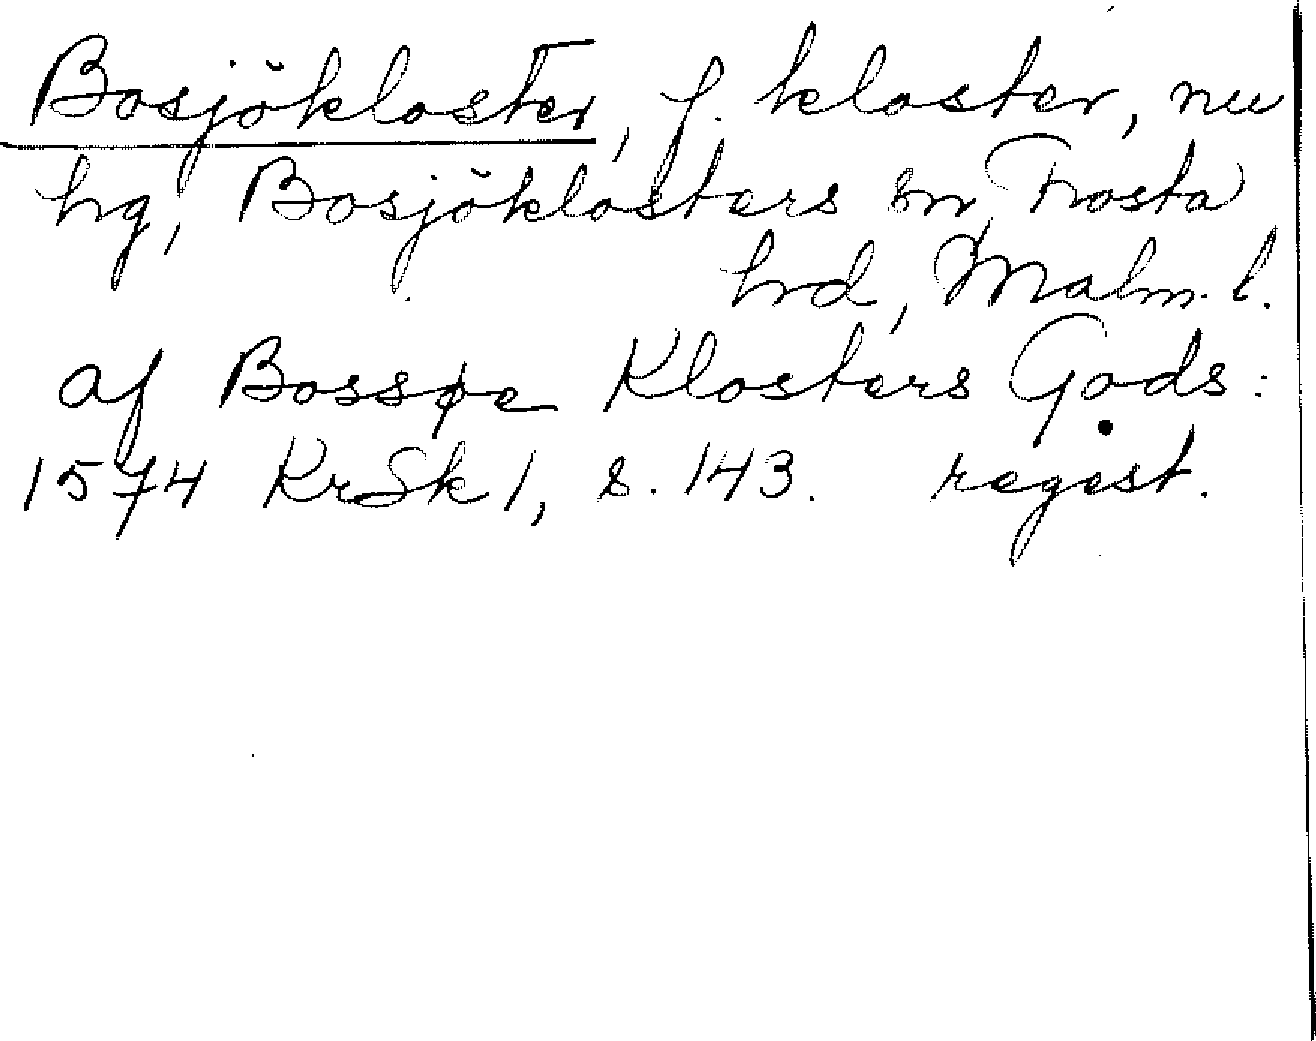 Bosjökloster, f. kloster, nu
hg, Bosjöklosters sn, Frosta
hrd, Malm. l.
af Bossøe Klosters Gods:
1574 KrSk 1, s. 143. regest.